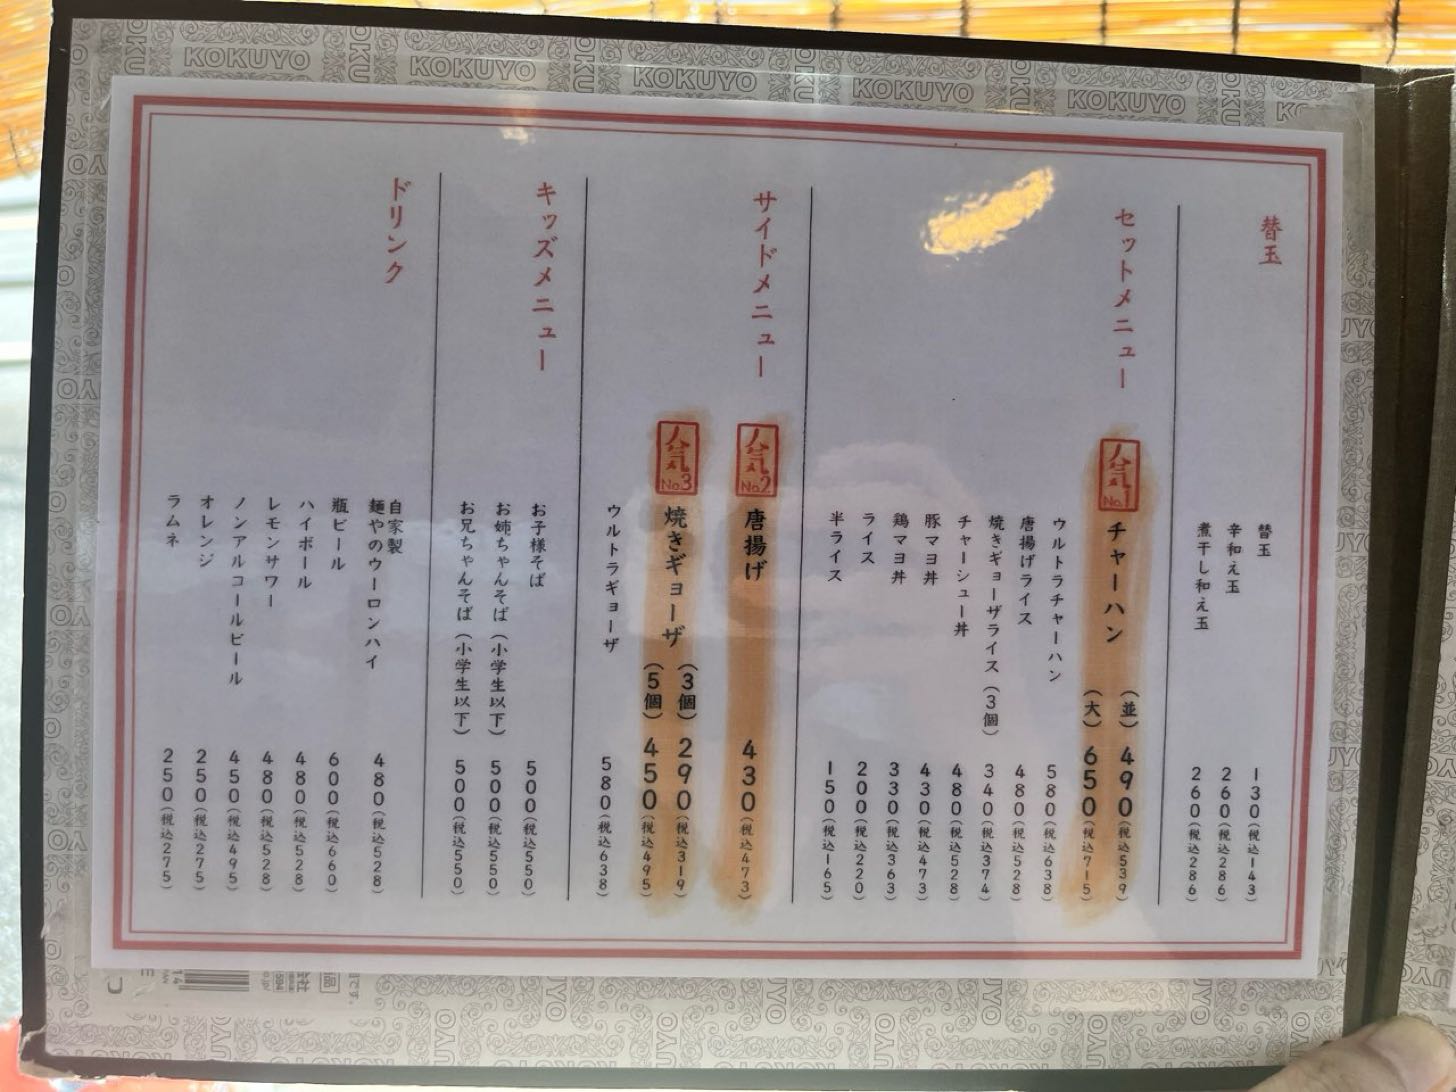 替玉
替玉 130(税込143)
辛和え玉 260(税込286)
煮干し和え玉 260(税込286)
セットメニュー
人気No.1 チャーハン (並) 490(税込539)
(大) 650(税込715)
ウルトラチャーハン 580(税込638)
唐揚げライス 480(税込528)
焼きギョーザライス(3個) 340(税込374)
チャーシュー丼 480(税込528)
豚マヨ丼 430(税込473)
鶏マヨ丼 330(税込363)
ライス 200(税込220)
半ライス 150(税込165)
サイドメニュー
人気No.2 唐揚げ 430(税込473)
人気No.3 焼きギョーザ (3個) 290(税込319)
(5個) 450(税込495)
ウルトラギョーザ 580(税込638)
キッズメニュー
お子様そば 500(税込550)
お姉ちゃんそば(小学生以下) 500(税込550)
お兄ちゃんそば(小学生以下) 500(税込550)
ドリンク
自家製
麺やのウーロンハイ 480(税込528)
瓶ビール 600(税込660)
ハイボール 480(税込528)
レモンサワー 480(税込528)
ノンアルコールビール 450(税込495)
オレンジ 250(税込275)
ラムネ 250(税込275)
KOKUYO KOKUYO KOKUYO KOKUYO KOKUYO